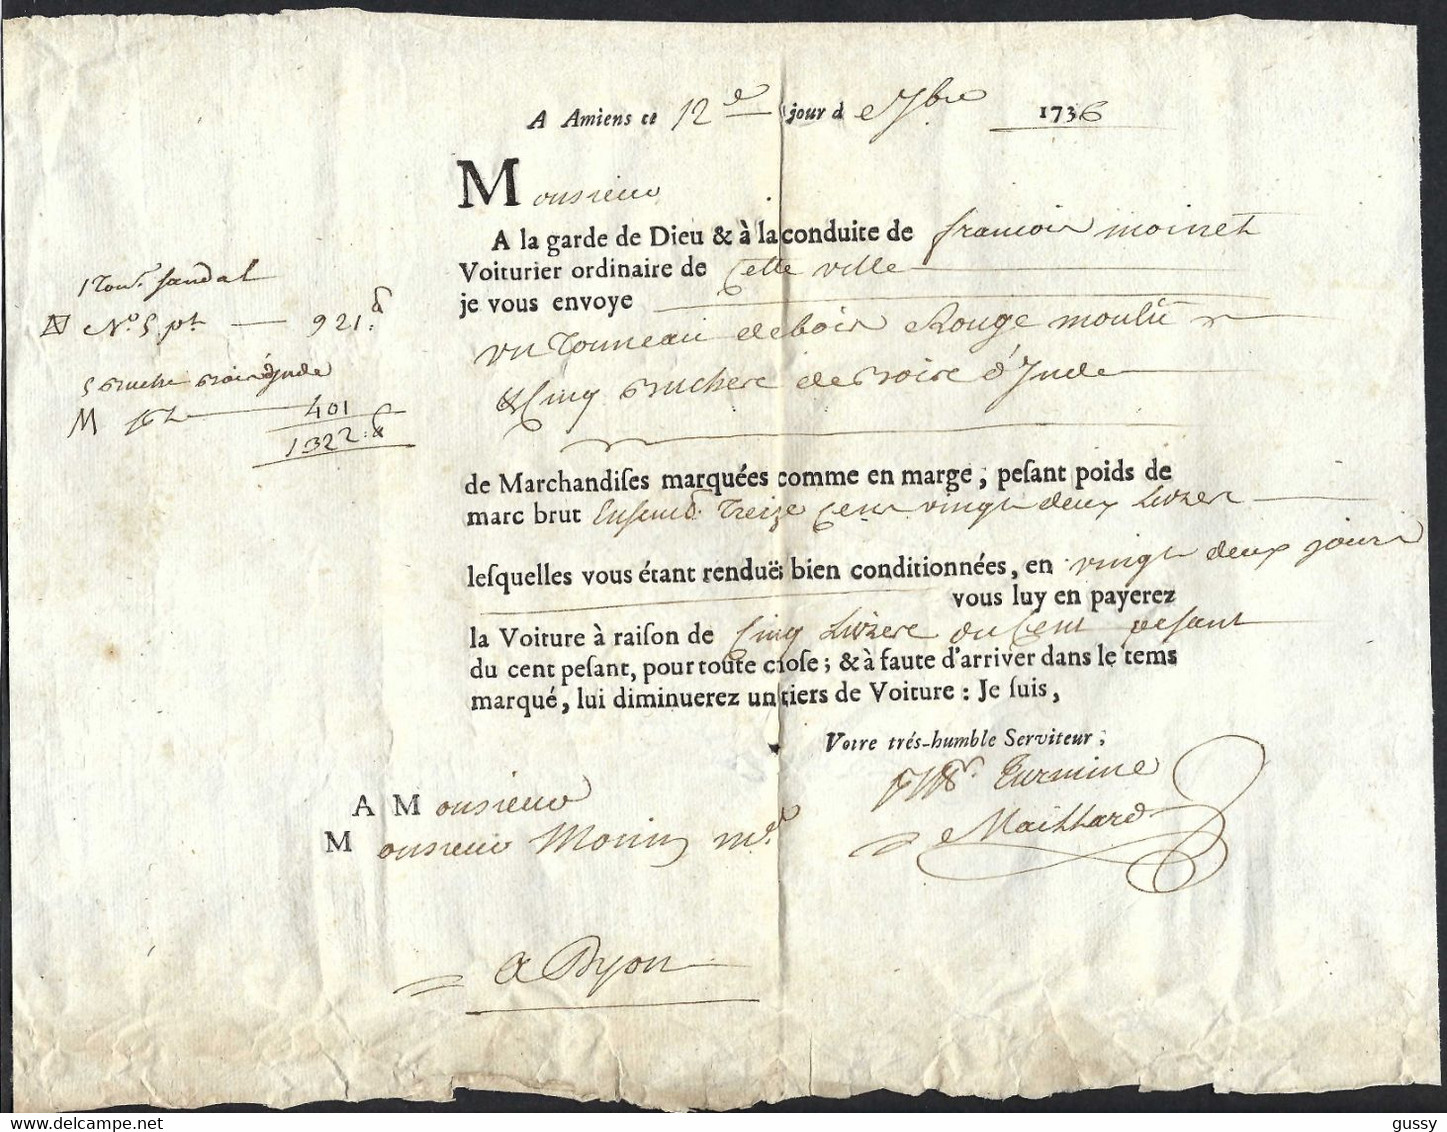 A Amiens ce 12e jour d e 7bre 1736
Monsieur
A la garde de Dieu & à la conduite de francois moinet
Voiturier ordinaire de Cette ville
je vous envoye
vn Tonneau de bois Rouge moulu
& Cinq de Bois d'Jnde
1 Ton. sandal
N.o 5 pt — 921.
5 Bois d'Jnde
M 401
1322
de Marchandiſes marquées comme en marge ; peſant poids de
marc brut Treize Cent vingt deux Livres
leſquelles vous étant renduës bien conditionnées, en vingt deux jours
vous luy en payerez
la Voiture à raiſon de Cinq Livres du Cent pesant
du cent peſant, pour toute choſe ; & à faute d'arriver dans le tems
marqué, lui diminuerez un tiers de Voiture : Je ſuis,
Votre trés-humble Serviteur ;
Maillard
A Monsieur
Monsieur Morin md.
a Dyon
gussy